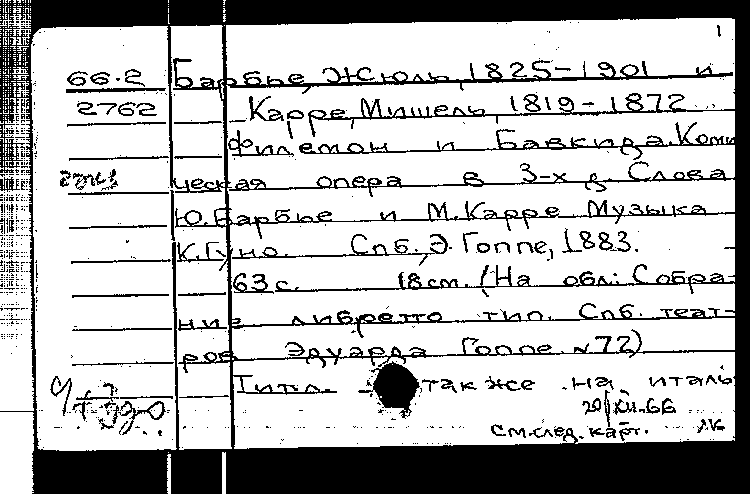 1
66.2 Барбье, Жюль, 1825-1901 и
2762 Карре, Мишель, 1819-1872
Филемон и Бавкида. Коми
ческая опера в 3-х д. Слова
Ю. Барбье и М. Карре Музыка
К. Гуно. Спб., Э. Гоппе, 1883.
63 с. 18 см. (На обл: Собра-
ние либретто тип. Спб. теат-
ров Эдуарда Гоппе №72)
Титл. также на италь
20/XII.66
см. след. карт.